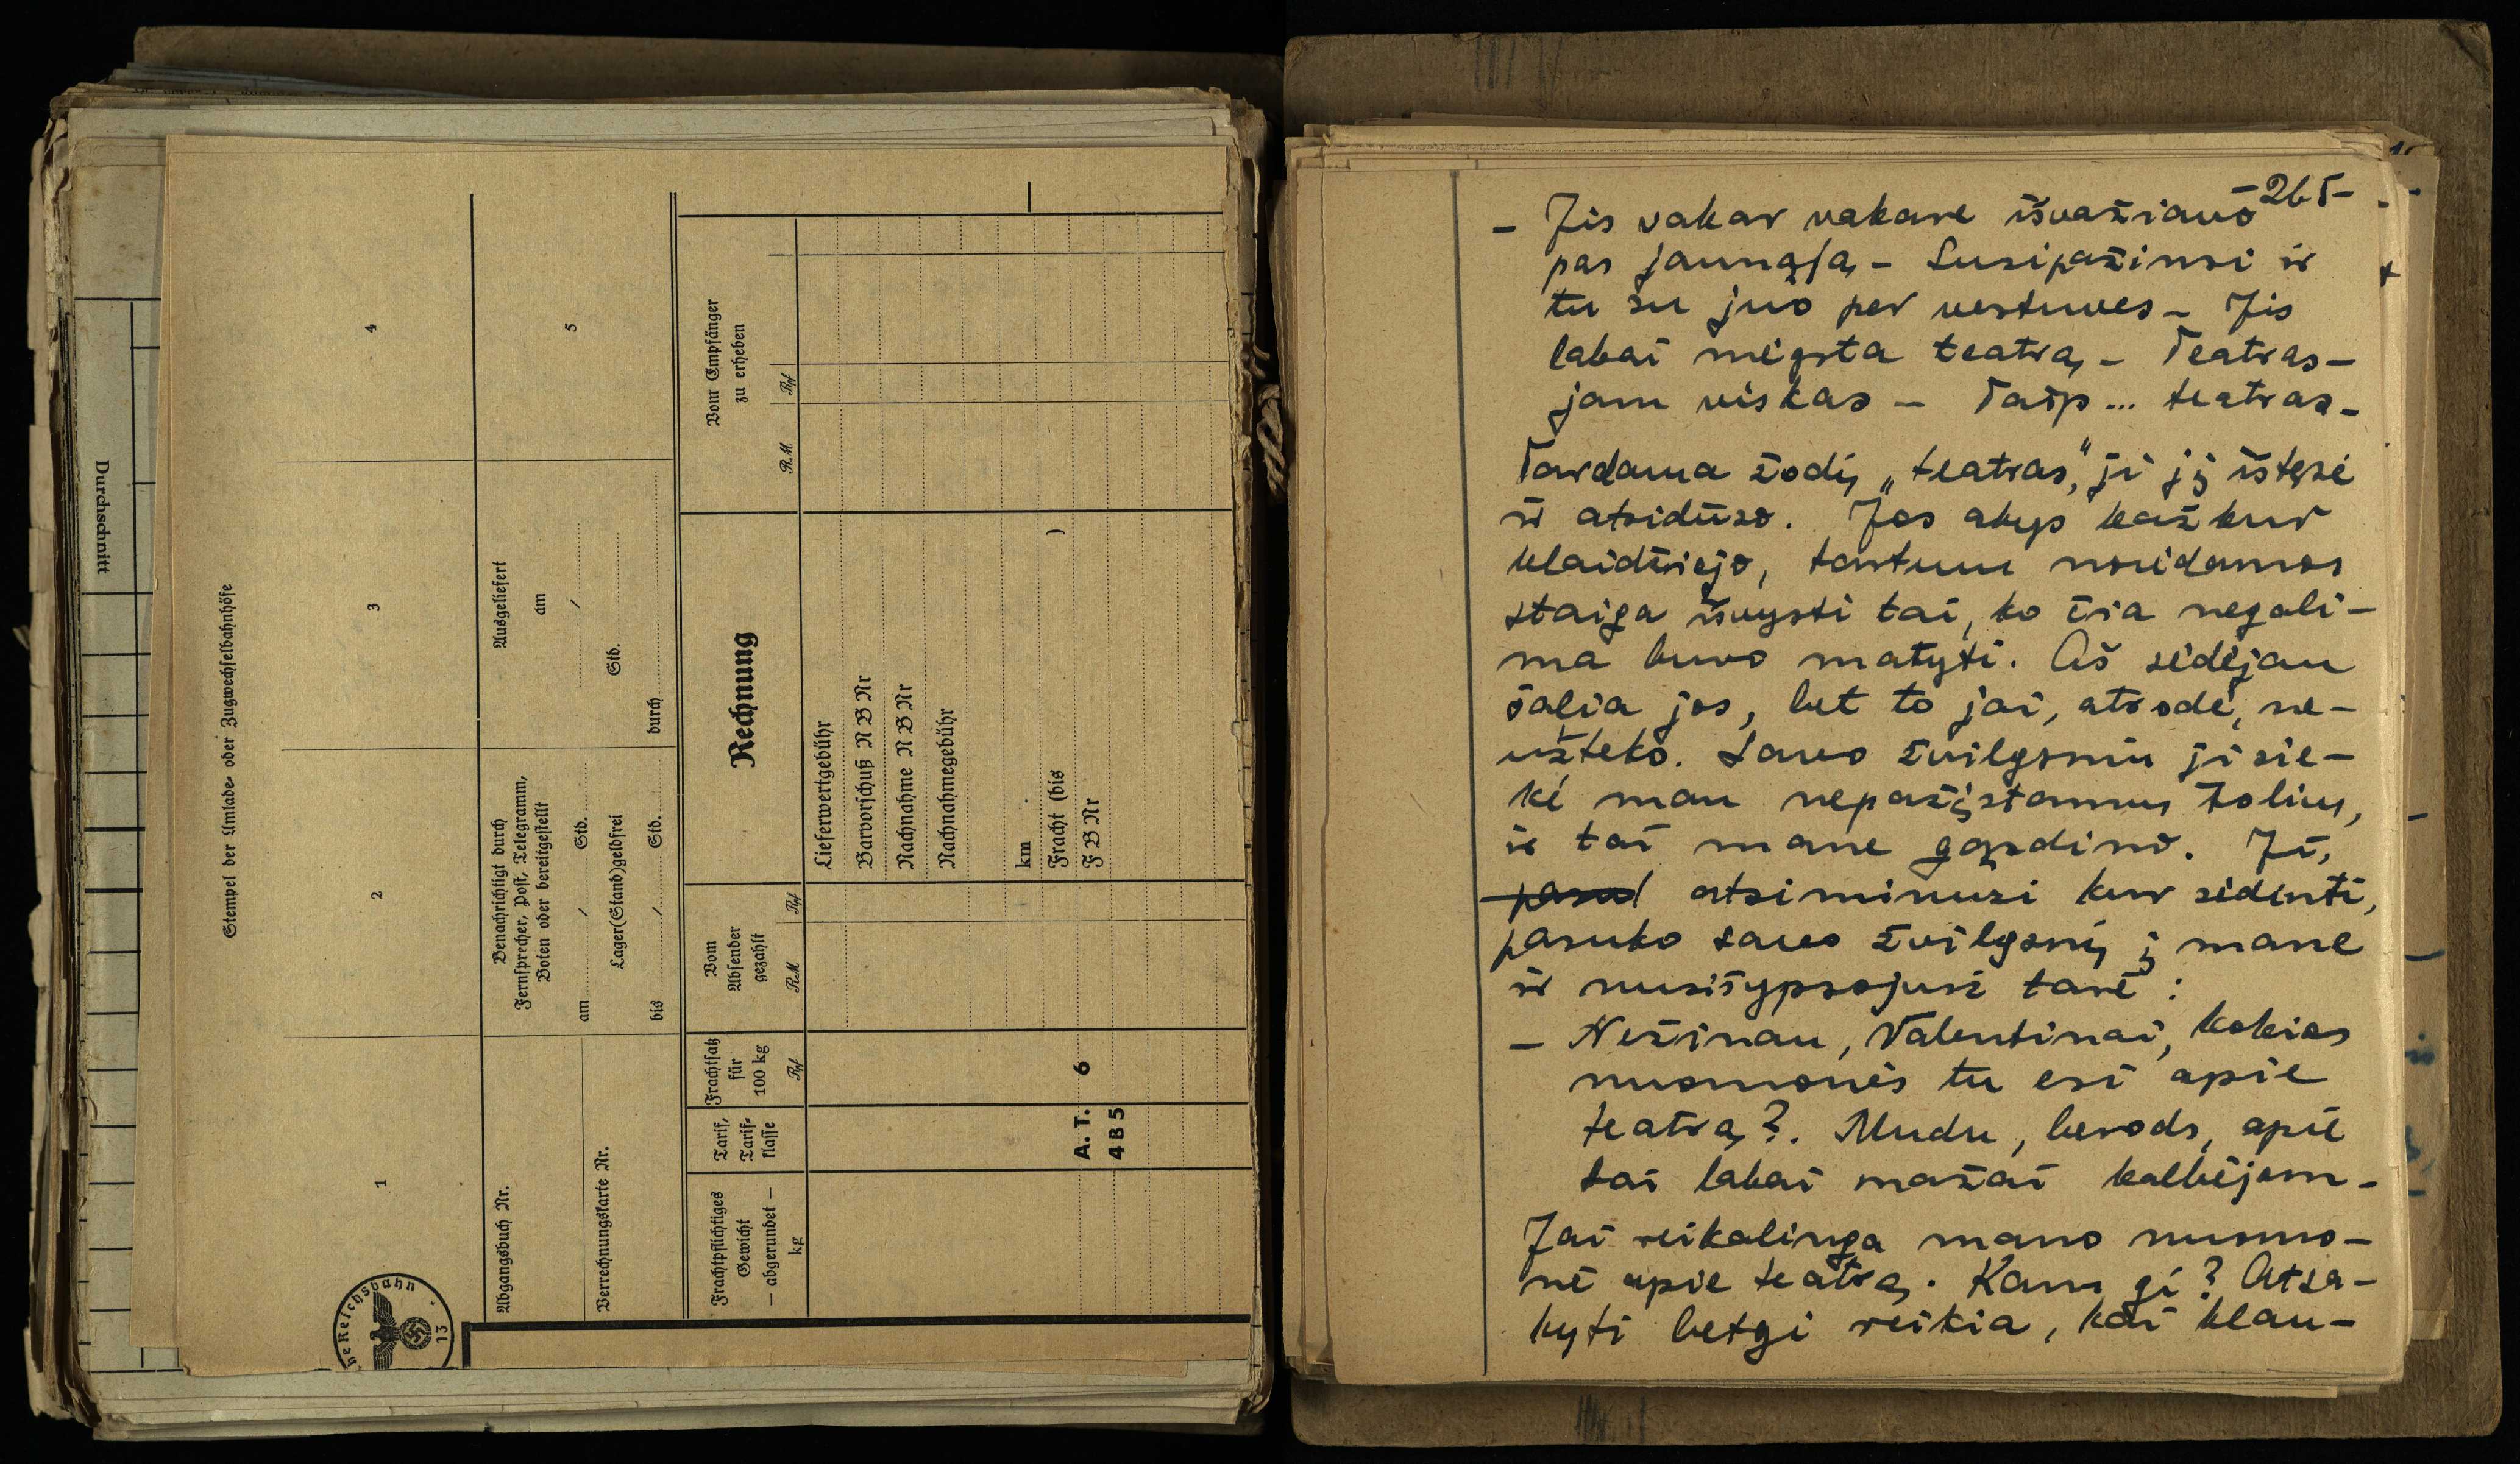 Durchschnitt
Stempel der Umlade- oder Zugwechselbahnhöfe
1
2
3
4
Abgangsbuch Nr.
Verrechnungskarte Nr.
Benachrichtigt durch
Fernsprecher, Post, Telegramm,
Boten oder bereitgestellt
am / Std.
Lager(Stand)geldfrei
bis / Std.
Ausgeliefert
am
/
Std.
durch
5
Frachtpflichtiges
Gewicht
— abgerundet —
kg
Tarif,
Tarif-
klasse
Frachtsatz
für
100 kg
Rpf
Vom
Absender
gezahlt
RM Rpf
Rechnung
Vom Empfänger
zu erheben
RM Rpf
Lieferwertgebühr
Barvorschuß N B Nr
Nachnahme N B Nr
Nachnahmegebühr
km
Fracht (bis )
A. T. 6 F B Nr
4 B 5
he Reichsbahn
13
-265-
- Jis vakar vakare išvažiavo
pas jaunąją - Susipažinsi ir
tu su juo per vestuves - Jis
labai mėgsta teatrą - Teatras -
jam viskas - Taip... teatras -
Tardama žodį „teatras," ji jį ištęsė
ir atsidūso. Jos akys kažkur
klaidžiojo, tartum norėdamos
staiga išvysti tai, ko čia negali-
ma buvo matyti. Aš sėdėjau
šalia jos, bet to jai, atrodė, ne-
užteko. Savo žvilgsniu ji sie-
kė man nepažįstamų tolių,
ir tai mane gąsdino. Ji,
pasuk atsiminusi kur sėdinti,
pasuko savo žvilgsnį į mane
ir nusišypsojusi tarė:
- Nežinau, Valentinai, kokios
nuomonės tu esi apie
teatrą?. Mudu, berods, apie
tai labai mažai kalbėjom -
Jai reikalinga mano nuomo-
nė apie teatrą. Kam gi? Atsa-
kyti betgi reikia, kai klau-